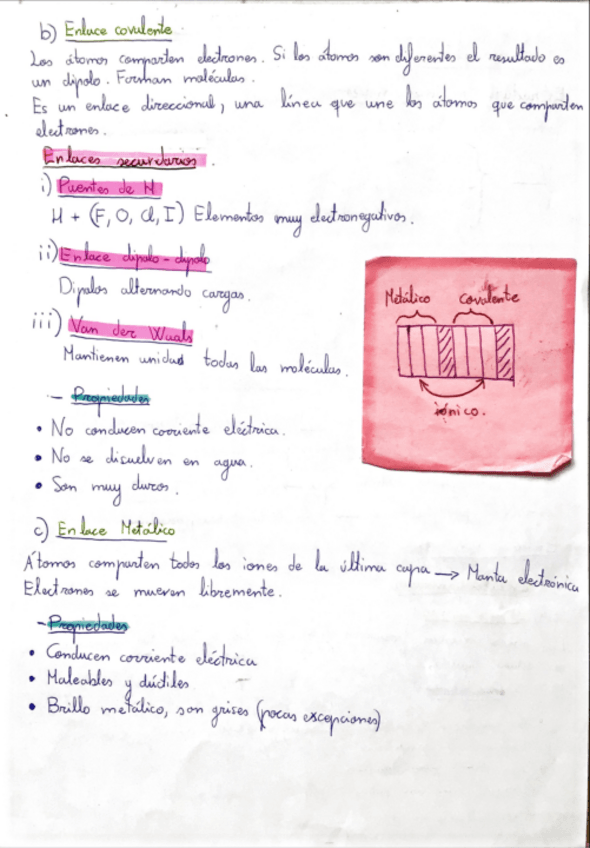 b) Enlace covalente.
Los átomos comparten electrones. Si los átomos son diferentes el resultado es
un dipolo. Forman moléculas.
Es un enlace direccional, una línea que une los átomos que comparten
electrones.
Enlaces secundarios.
i) Puentes de H
H + (F, O, Cl, I) Elementos muy electronegativos.
ii) Enlace dipolo-dipolo
Dipolos alternando cargas.
iii) Van der Waals
Mantienen unidad todas las moléculas.
Metálico covalente
iónico.
- Propiedades
• No conducen corriente eléctrica.
• No se disuelven en agua.
• Son muy duros.
c) Enlace Metálico
Átomos comparten todos los iones de la última capa → Manta electrónica
Electrones se mueven libremente.
- Propiedades
• Conducen corriente eléctrica
• Maleables y dúctiles
• Brillo metálico, son grises (pocas excepciones)